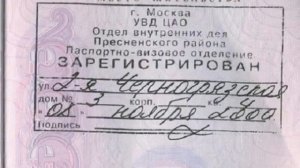 г. Москва
УВД ЦАО
Отдел внутренних дел
Пресненского района
Паспортно-визовое отделение
ЗАРЕГИСТРИРОВАН
ул. 2-я Черногрязская
дом № 3 корп. кв.
"08" ноября
Подпись